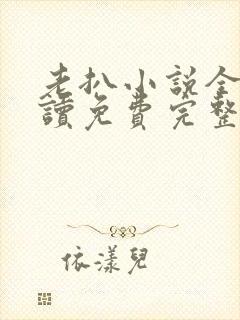 老扒小説全
讀免費完整
依漾兒